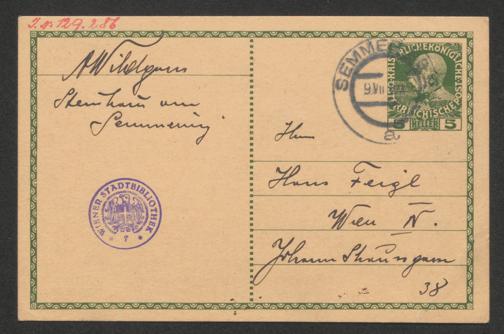 I.N. 129.286
A Wildgans
Steinhaus am
Semmering
SEMMERING
9 VII
a
KAISERLICHKÖNIGLICHE
5
HELLER
5
WIENER STADTBIBLIOTHEK
Herrn
Hans Feigl
Wien IV.
Johann Straussgasse
38